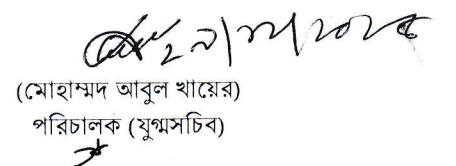 (মোহাম্মদ আবুল খায়ের)
পরিচালক (যুগ্মসচিব)